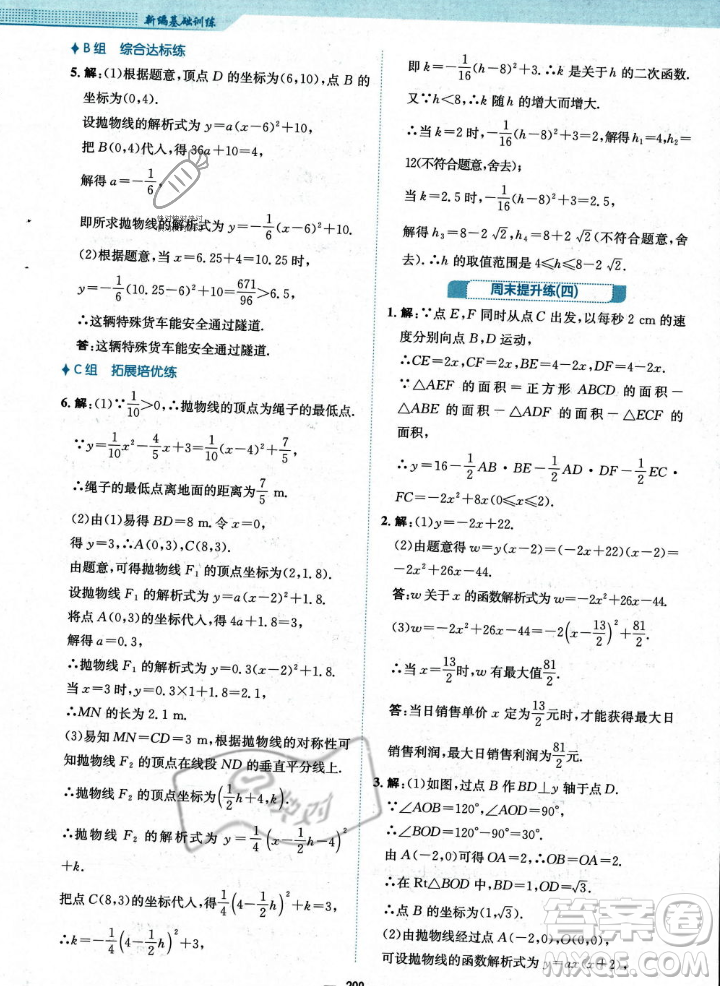 新编基础训练
B组 综合达标练
5. 解:(1)根据题意,顶点 D 的坐标为(6,10),点 B 的
坐标为(0,4).
设抛物线的解析式为 y=a(x−6)²+10.
把 B(0,4)代入,得 36a+10=4.
解得 a=−1/6.
即所求抛物线的解析式为 y=−1/6(x−6)²+10.
(2)根据题意,当 x=6.25+4=10.25 时,y=
−1/6(10.25−6)²+10.25=671/96>6.5.
∴这辆特殊货车能安全通过隧道.
答:这辆特殊货车能安全通过隧道.
C组 拓展培优练
6. 解:(1)∵1/10>0,∴抛物线的顶点为绳子的最低点.
∵y=1/10x²−4/5x+3=1/10(x−4)²+7/5,
∴绳子的最低点离地面的距离为7/5 m.
(2)由(1)易得 BD=8 m. 令 x=0,
得 y=3,∴A(0,3),C(8,3).
由题意,可得抛物线 F₁ 的顶点坐标为(2,1.8).
设抛物线 F₁ 的解析式为 y=a(x−2)²+1.8.
将点 A(0,3)的坐标代入,得 4a+1.8=3.
解得 a=0.3,
∴抛物线 F₁ 的解析式为 y=0.3(x−2)²+1.8.
当 x=3 时,y=0.3×1+1.8=2.1,
∴MN 的长为 2.1 m.
(3)易知 MN=CD=3,根据抛物线的对称性可
知抛物线的顶点在线段 ND 的垂直平分线上.
∴抛物线 F₂ 的顶点坐标为(1/2h+4,k).
∴抛物线 F₂ 的解析式为 y=1/4(x−1/2h−4)²
+k.
把点 C(8,3)的坐标代入,得1/4(4−1/2h)²+k=3.
∴k=−1/4(4−1/2h)²+3,
即 k=−1/16(h−8)²+3.∴k 是关于 h 的二次函数.
又∵h<8,∴k 随 h 的增大而增大.
∴当 k=2 时,−1/16(h−8)²+3=2,解得 h₁=4,h₂=
12(不符合题意,舍去);
当 k=2.5 时,−1/16(h−8)²+3=2.5,
解得 h₃=8−2√2,h₄=8+2√2(不符合题意,舍
去).∴h 的取值范围是 4≤h≤8−2√2.
周末提升练(四)
1. 解:∵点 E,F 同时从点 C 出发,以每秒 2 cm 的速
度分别向点 B,D 运动,
∴CE=2x,CF=2x,BE=4−2x,DF=4−2x.
∵△AEF 的面积=正方形 ABCD 的面积−
△ABE 的面积−△ADF 的面积−△ECF 的
面积,
∴y=16−1/2AB·BE−1/2AD·DF−1/2EC·
FC=−2x²+8x(0≤x≤2).
2. 解:(1)y=−2x+22.
(2)由题意得 w=(−2x+22)(x−2)=
−2x²+26x−44.
答:w 关于 x 的函数解析式为 w=−2x²+26x−44.
(3)w=−2x²+26x−44=−2(x−13/2)²+81/2.
∴当 x=13/2时,w 有最大值81/2.
答:当日销售单价 x 定为13/2元时,才能获得最大日
销售利润,最大日销售利润为81/2元.
3. 解:(1)如图,过点 B 作 BD⊥y 轴于点 D.
∵∠AOB=120°,∠AOD=90°,
∴∠BOD=120°−90°=30°.
由 A(−2,0)可得 OA=2,∴OB=OA=2.
∴在 Rt△BOD 中,∵∠BOD=30°,
∴点 B 的坐标为(1,√3).
(2)由抛物线经过点 A(−2,0),O(0,0),
可设抛物线的函数解析式为 y=ax(x+2),
200
答案圈